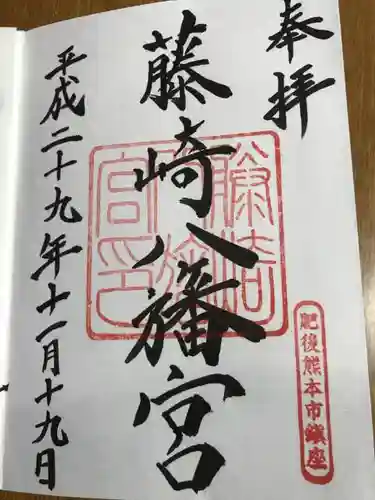 奉拝
藤崎八旛宮
平成二十九年十一月十九日
肥後熊本市鎮座